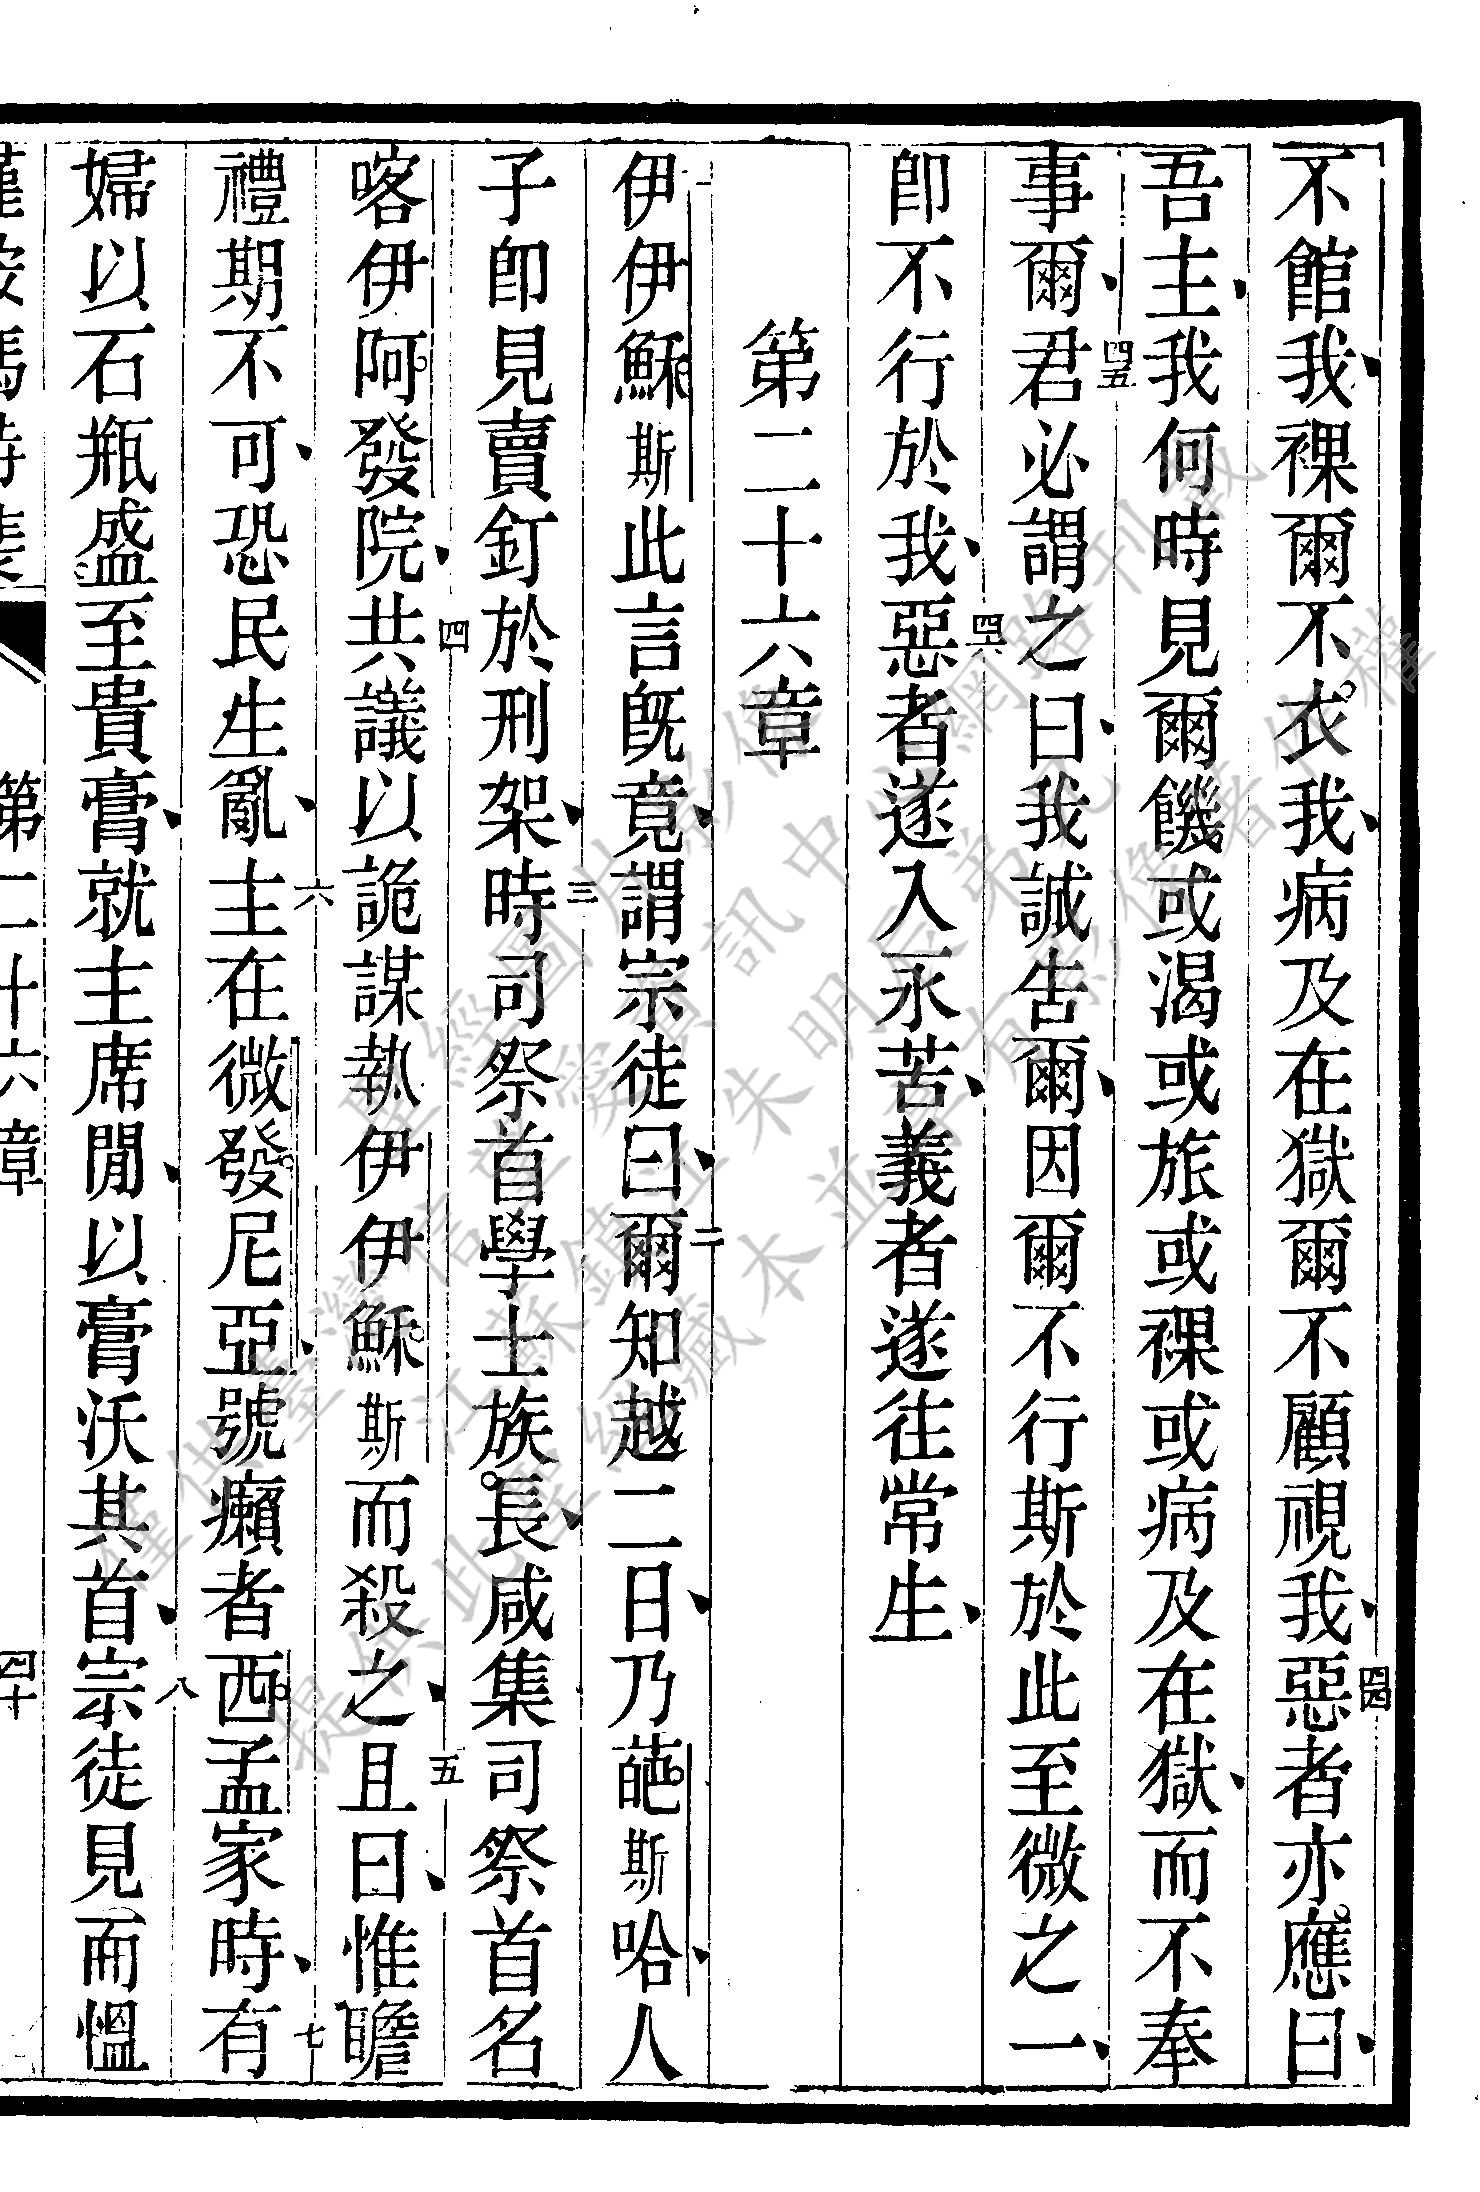 不館我裸爾不衣我病及在獄爾不顧視我四四惡者亦應曰
吾主我何時見爾饑或渴或旅或裸或病及在獄而不奉
事爾四五君必謂之曰我誠告爾因爾不行斯於此至微之一
卽不行於我四六惡者遂入永苦義者遂往常生
第二十六章
一伊伊穌斯此言旣竟三謂宗徒曰二爾知越二日乃葩斯哈人
子卽見賣釘於刑架三時司祭首學士族長咸集司祭首名
喀伊阿發院四共議以詭謀執伊伊穌斯而殺之五且曰惟瞻
禮期不可恐民生亂六主在微發尼亞號癩者西孟家時七有
婦以石瓶盛至貴膏就主席閒以膏沃其首八宗徒見而慍
第二十六章
四十